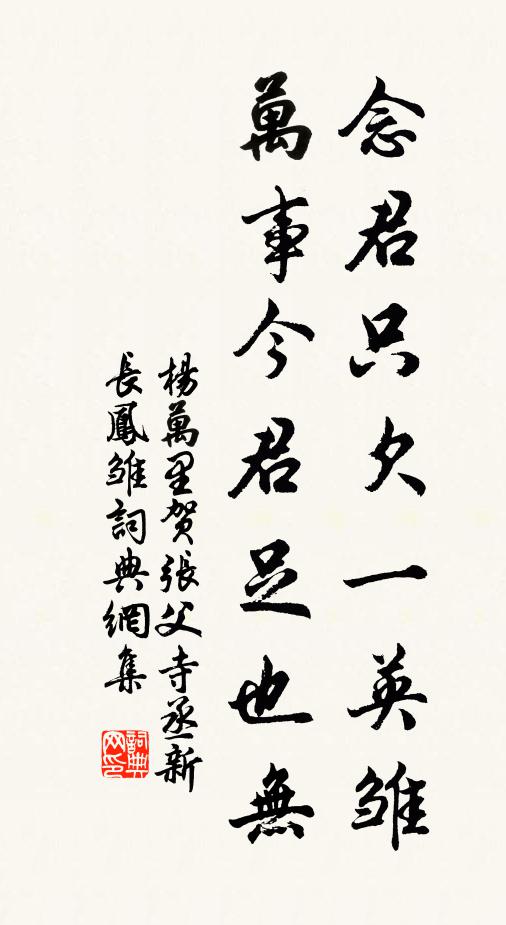 念君只欠一英雏
萬事今君足也無
楊萬里賀張父寺丞新
長鳳雏詞典網集
詞典網印